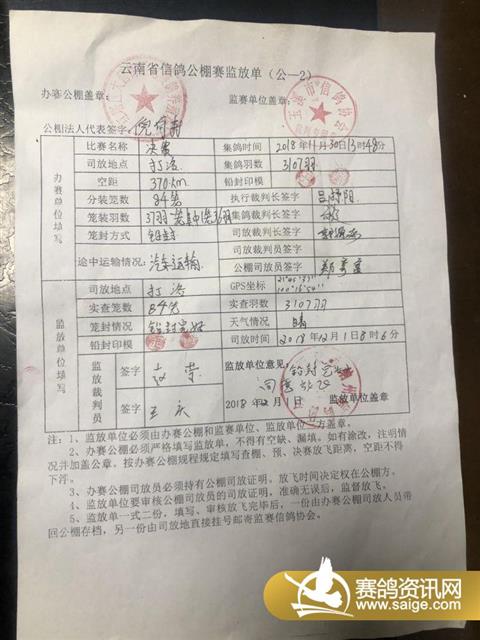 云南省信鸽公棚赛监放单（公—2）
办赛公棚盖章： 监赛单位盖章：
玉溪市信鸽协会
公棚法人代表签字：
办赛单位填写
比赛名称 决赛 集鸽时间 2018年11月30日13时48分
司放地点 打洛 集鸽羽数 3107羽
空距 370km 铅封印模
分装笼数 84笼 执行裁判长签字
笼装羽数 37羽 集鸽裁判长签字
笼封方式 铅封 司放裁判长签字
途中运输情况： 汽车运输 司放裁判员签字
公棚司放员签字
监放单位填写
司放地点 打洛 GPS坐标
实查笼数 84笼 实查羽数 3107羽
笼封情况 铅封完好 天气情况 晴
铅封印模 司放时间 2018年12月1日8时6分
监放裁判员 签字 监放单位意见： 铅封完好
签字 王庆 2018年12月1日 监放单位盖章
注：1、监放单位必须由办赛公棚和监赛单位、监放单位三方盖章。
2、办赛公棚必须严格填写监放单，不得有空缺、漏填。如有涂改，注明情
况并加盖公章。按办赛公棚规程规定填写查棚、预、决赛放飞距离，空距不得
下浮。
3、办赛公棚司放员必须持有公棚司放证明。放飞时间决定权在公棚方。
4、监放单位要审核公棚司放员的司放证明，准确无误后，监督放飞。
5、监放单一式二份，填写、审核放飞完毕后，一份由办赛公棚司放人员带
回公棚存档，另一份由司放地直接挂号邮寄监赛信鸽协会。
赛鸽资讯网
www.saige.com